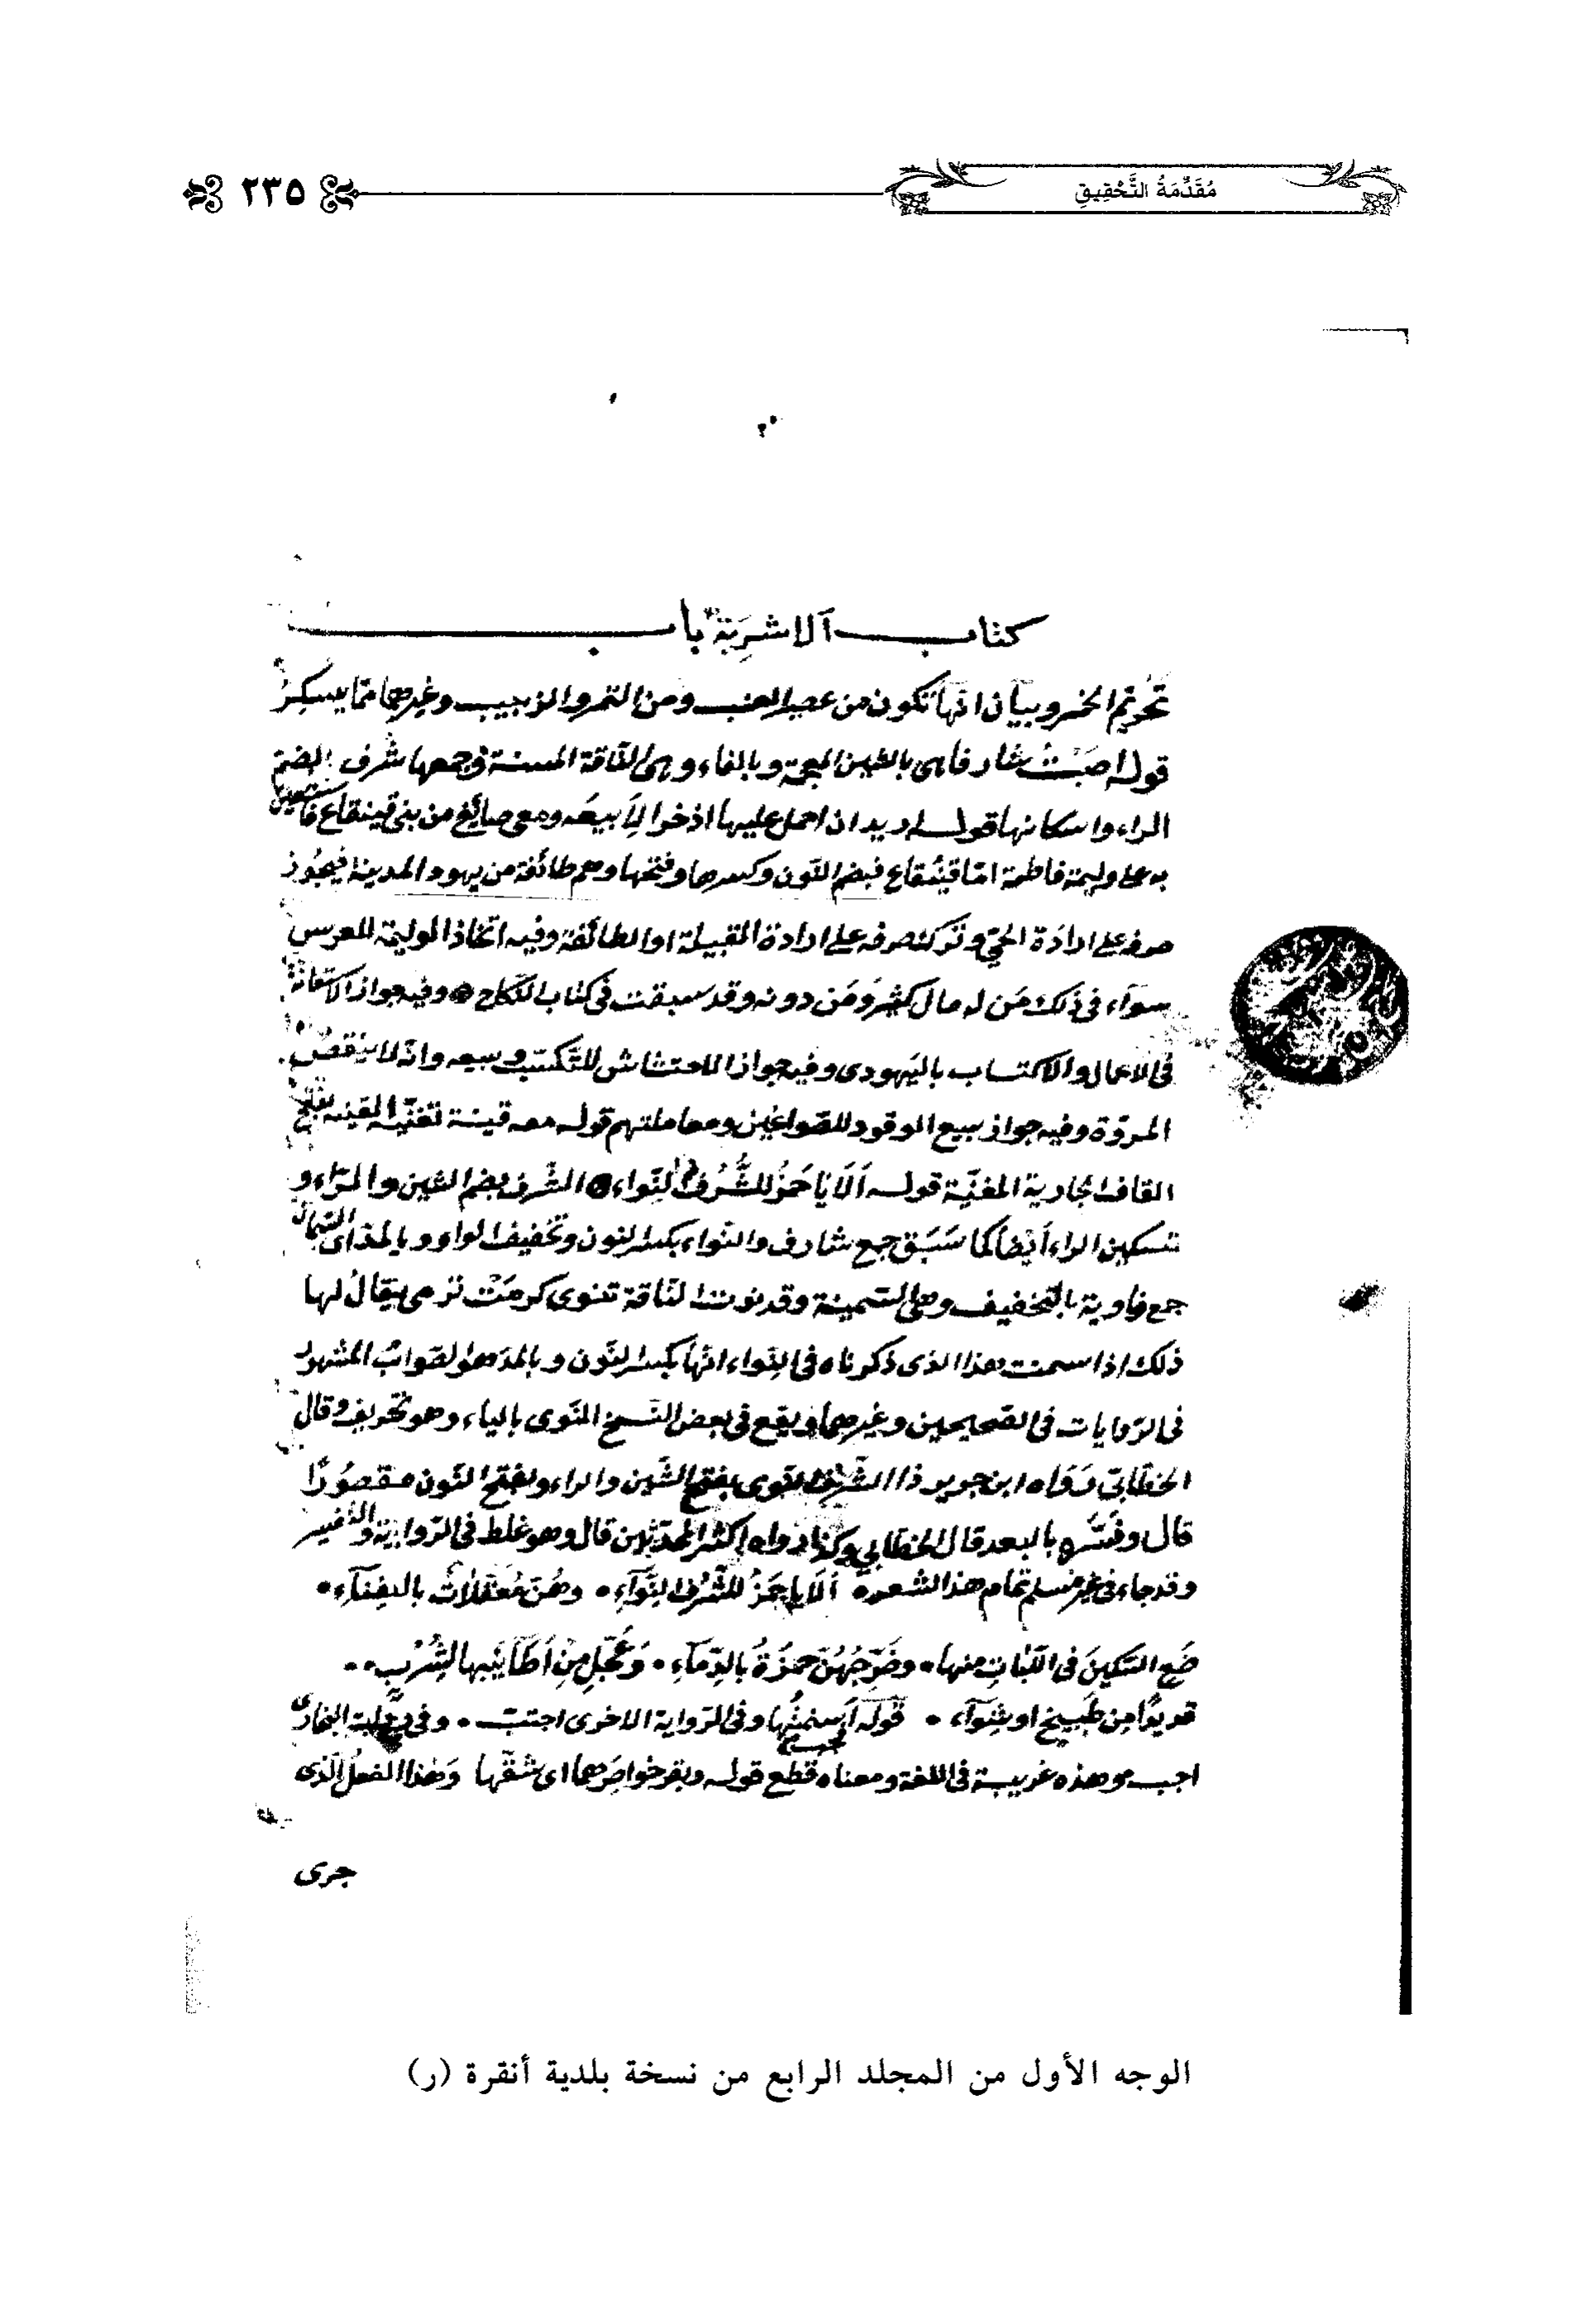 مُقَدِّمَةُ التَّحْقِيقِ
٢٣٥
كتاب الاشربة باب
تحريم الخمر وبيان انها تكون من عصير العنب ومن التمر والزبيب وغيرهما مما يسكر
قوله اصبت شارفا هى بالشين المعجمة وبالفاء وهى الناقة المسنة وجمعها شرف بضم
الراء واسكانها قوله اريد ان احمل عليها اذخرا لأبيعه ومعى صائغ من بنى قينقاع فاستعين
به على وليمة فاطمة امّا قينقاع فبضم النون وكسرها وفتحها وهم طائفة من يهود المدينة فيجوز
صرفه على ارادة الحي وترك صرفه على ارادة القبيلة او الطائفة وفيه اتخاذ الوليمة للعرس
سوآء فى ذلك من له مال كثير ومن دونه وقد سبقت فى كتاب النكاح وفيه جواز الاستعانة
فى الاعمال والاكتساب باليهودى وفيه جواز الاحتشاش للتكسب وبيعه وانه لا ينقص
المروّة وفيه جواز بيع الوقود للصواغين ومعاملتهم قوله معه قينة تغنيه القينة بفتح
القاف الجارية المغنية قوله اَلَا يَا حَمْزُ للشُّرُف النِّواء الشرف بضم الشين والراء و
تسكين الراء أيضا كما سَبَق جمع شارف والنواء بكسر النون وتخفيف الواو وبالمد اى السمان
جمع ناوية بالتخفيف وهى السمينة وقد نوت الناقة تنوى كرمت ترمى يقال لها
ذلك اذا سمنت هذا الذى ذكرناه فى النواء انها بكسر النون وبالمد هو الصواب المشهور
فى الروايات فى الصحيحين وغيرهما ويقع فى بعض النسخ النوى بالياء وهو تحريف وقال
الخطابى رَوَاه ابن جرير ذا الشرف النوى بفتح الشين والراء وبفتح النون مقصورًا
قال وفسّره بالبعد قال الخطابي وكذا رواه اكثر المحدثين قال وهو غلط فى الرواية والتفسير
وقد جاء فى غير مسلم تمام هذا الشعر ألَا يا حَمْزُ للشُّرُف النِّوَآءِ وهُنَّ مُعَقَّلَاتٌ بالفِنآءِ
ضَعِ السّكِينَ فى اللَّبّاتِ منها وضَرِّجْهُنّ حمزَةُ بالدِّمآءِ وَعَجِّل مِنْ اَطَائِبِها لِشُرْبٍ
قديرًا مِن طَبيخٍ او شِوآء قوله اَسنمتُها وفى الرواية الاخرى اجتب وفى رواية للبخارى
اجب وهذه غريبة فى اللغة ومعناه قطع قوله وبقر خواصِرَهما اى شقّها وَهذا الفعلُ الّذى
جرى
الوجه الأول من المجلد الرابع من نسخة بلدية أنقرة (ر)